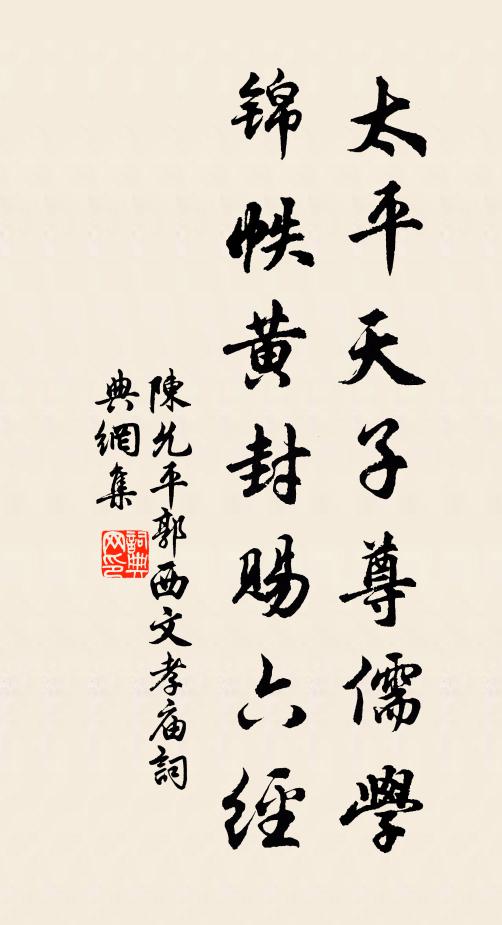 太平天子尊儒學
錦帙黃封賜六經
陳允平郭西文孝庙詞
典網集
詞典网印